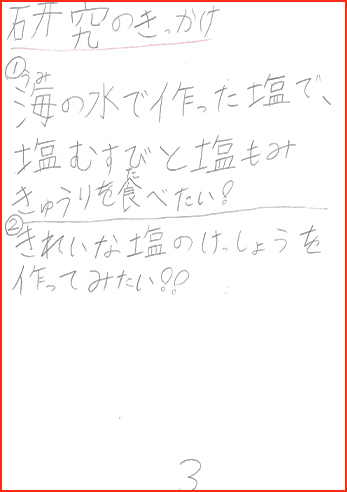 研究のきっかけ
①うみ
海の水で作った塩で、
塩むすびと塩もみ
た
きゅうりを食べたい!
②きれいな塩のけっしょうを
作ってみたい!!
3